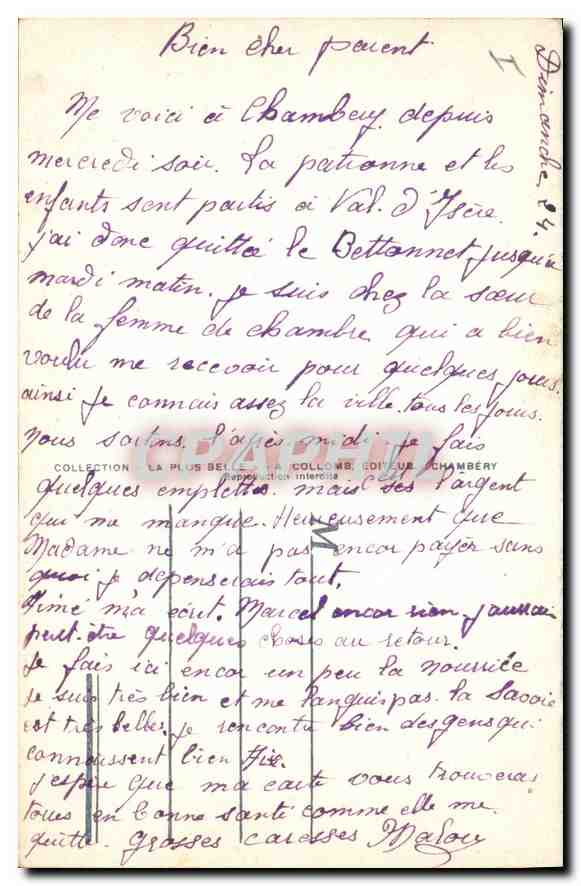 Bien cher parent
I
Dimanche 24.
Me voici à Chambery depuis
mercredi soir. La patronne et les
enfants sont partis à Val. d'Isère.
j'ai donc quittée le Bettonnet jusqu'à
mardi matin. je suis chez la sœur
de la femme de chambre qui a bien
voulu me recevoir pour quelques jours.
ainsi je connais assez la ville. tous les jours.
nous sortons l'après midi je fais
COLLECTION "LA PLUS BELLE" A. COLLOMB, EDITEUR, CHAMBÉRY
Reproduction interdite
CPARAMA
quelques emplettes. mais ses l'argent
qui me manque. Heureusement que
M
Madame ne m'a pas encor payer sans
quoi je depenserais tout.
Aimé m'a écrit. Marcel encor rien. j'aurrai
peut-être quelques choses au retour.
Je fais ici encor un peu la nourrice
je suis très bien et me languis pas. la Savoie
est très belles. je rencontre bien des gens qui
connaissent bien Aix.
j'espère que ma carte vous trouveras
tous en bonne santé comme elle me
quitte. Grosses caresses Malou